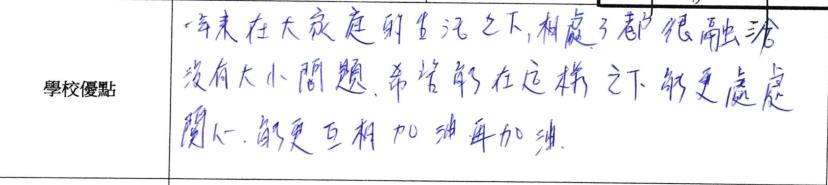 一年來在大家庭的生活之下,相處了都很融洽
學校優點
沒有大小問題.希望能在這樣之下能更處處
關心.能更互相加油再加油.